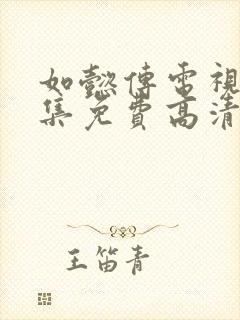 如懿傳電視
集免費高清
王笛青